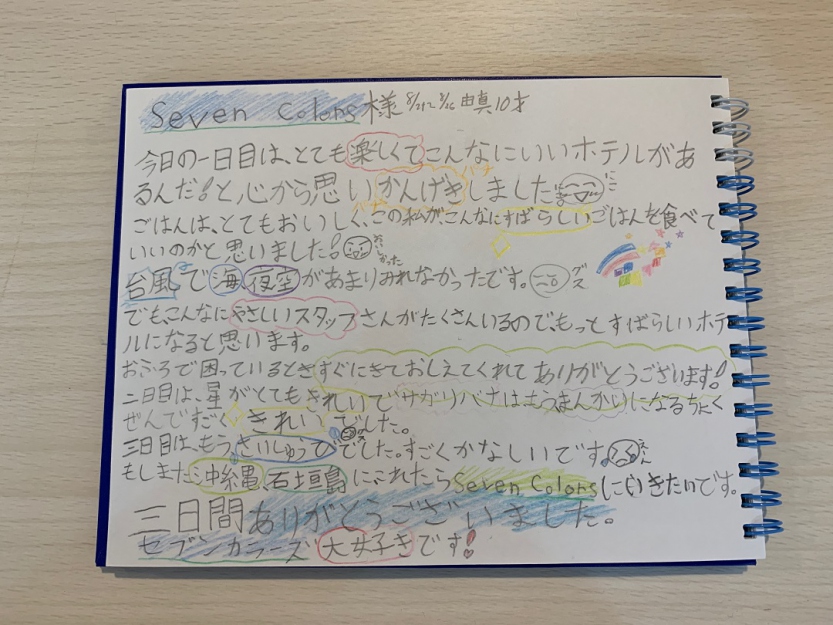 Seven Colors 様 由真 10才
今日の一日目は、とても楽しくてこんなにいいホテルがあ
るんだ!と心から思いかんげきしました
ごはんは、とてもおいしく、この私が、こんなにすばらしいごはんを食べて
いいのかと思いました!
台風で海、夜空があまりみれなかったです。
でも、こんなにやさしいスタッフさんがたくさんいるので、もっとすばらしいホテ
ルになると思います。
おふろで困っているときすぐにきておしえてくれてありがとうございます!
二日目は、星がとてもきれいでサガリバナはもうまんかいになるちょく
ぜんですごくきれいでした。
三日目は、もうさいしゅう日でした。すごくかなしいです。
もしまた沖縄、石垣島にこれたらSeven Colorsにいきたいです。
三日間ありがとうございました。
セブンカラーズ大好きです!